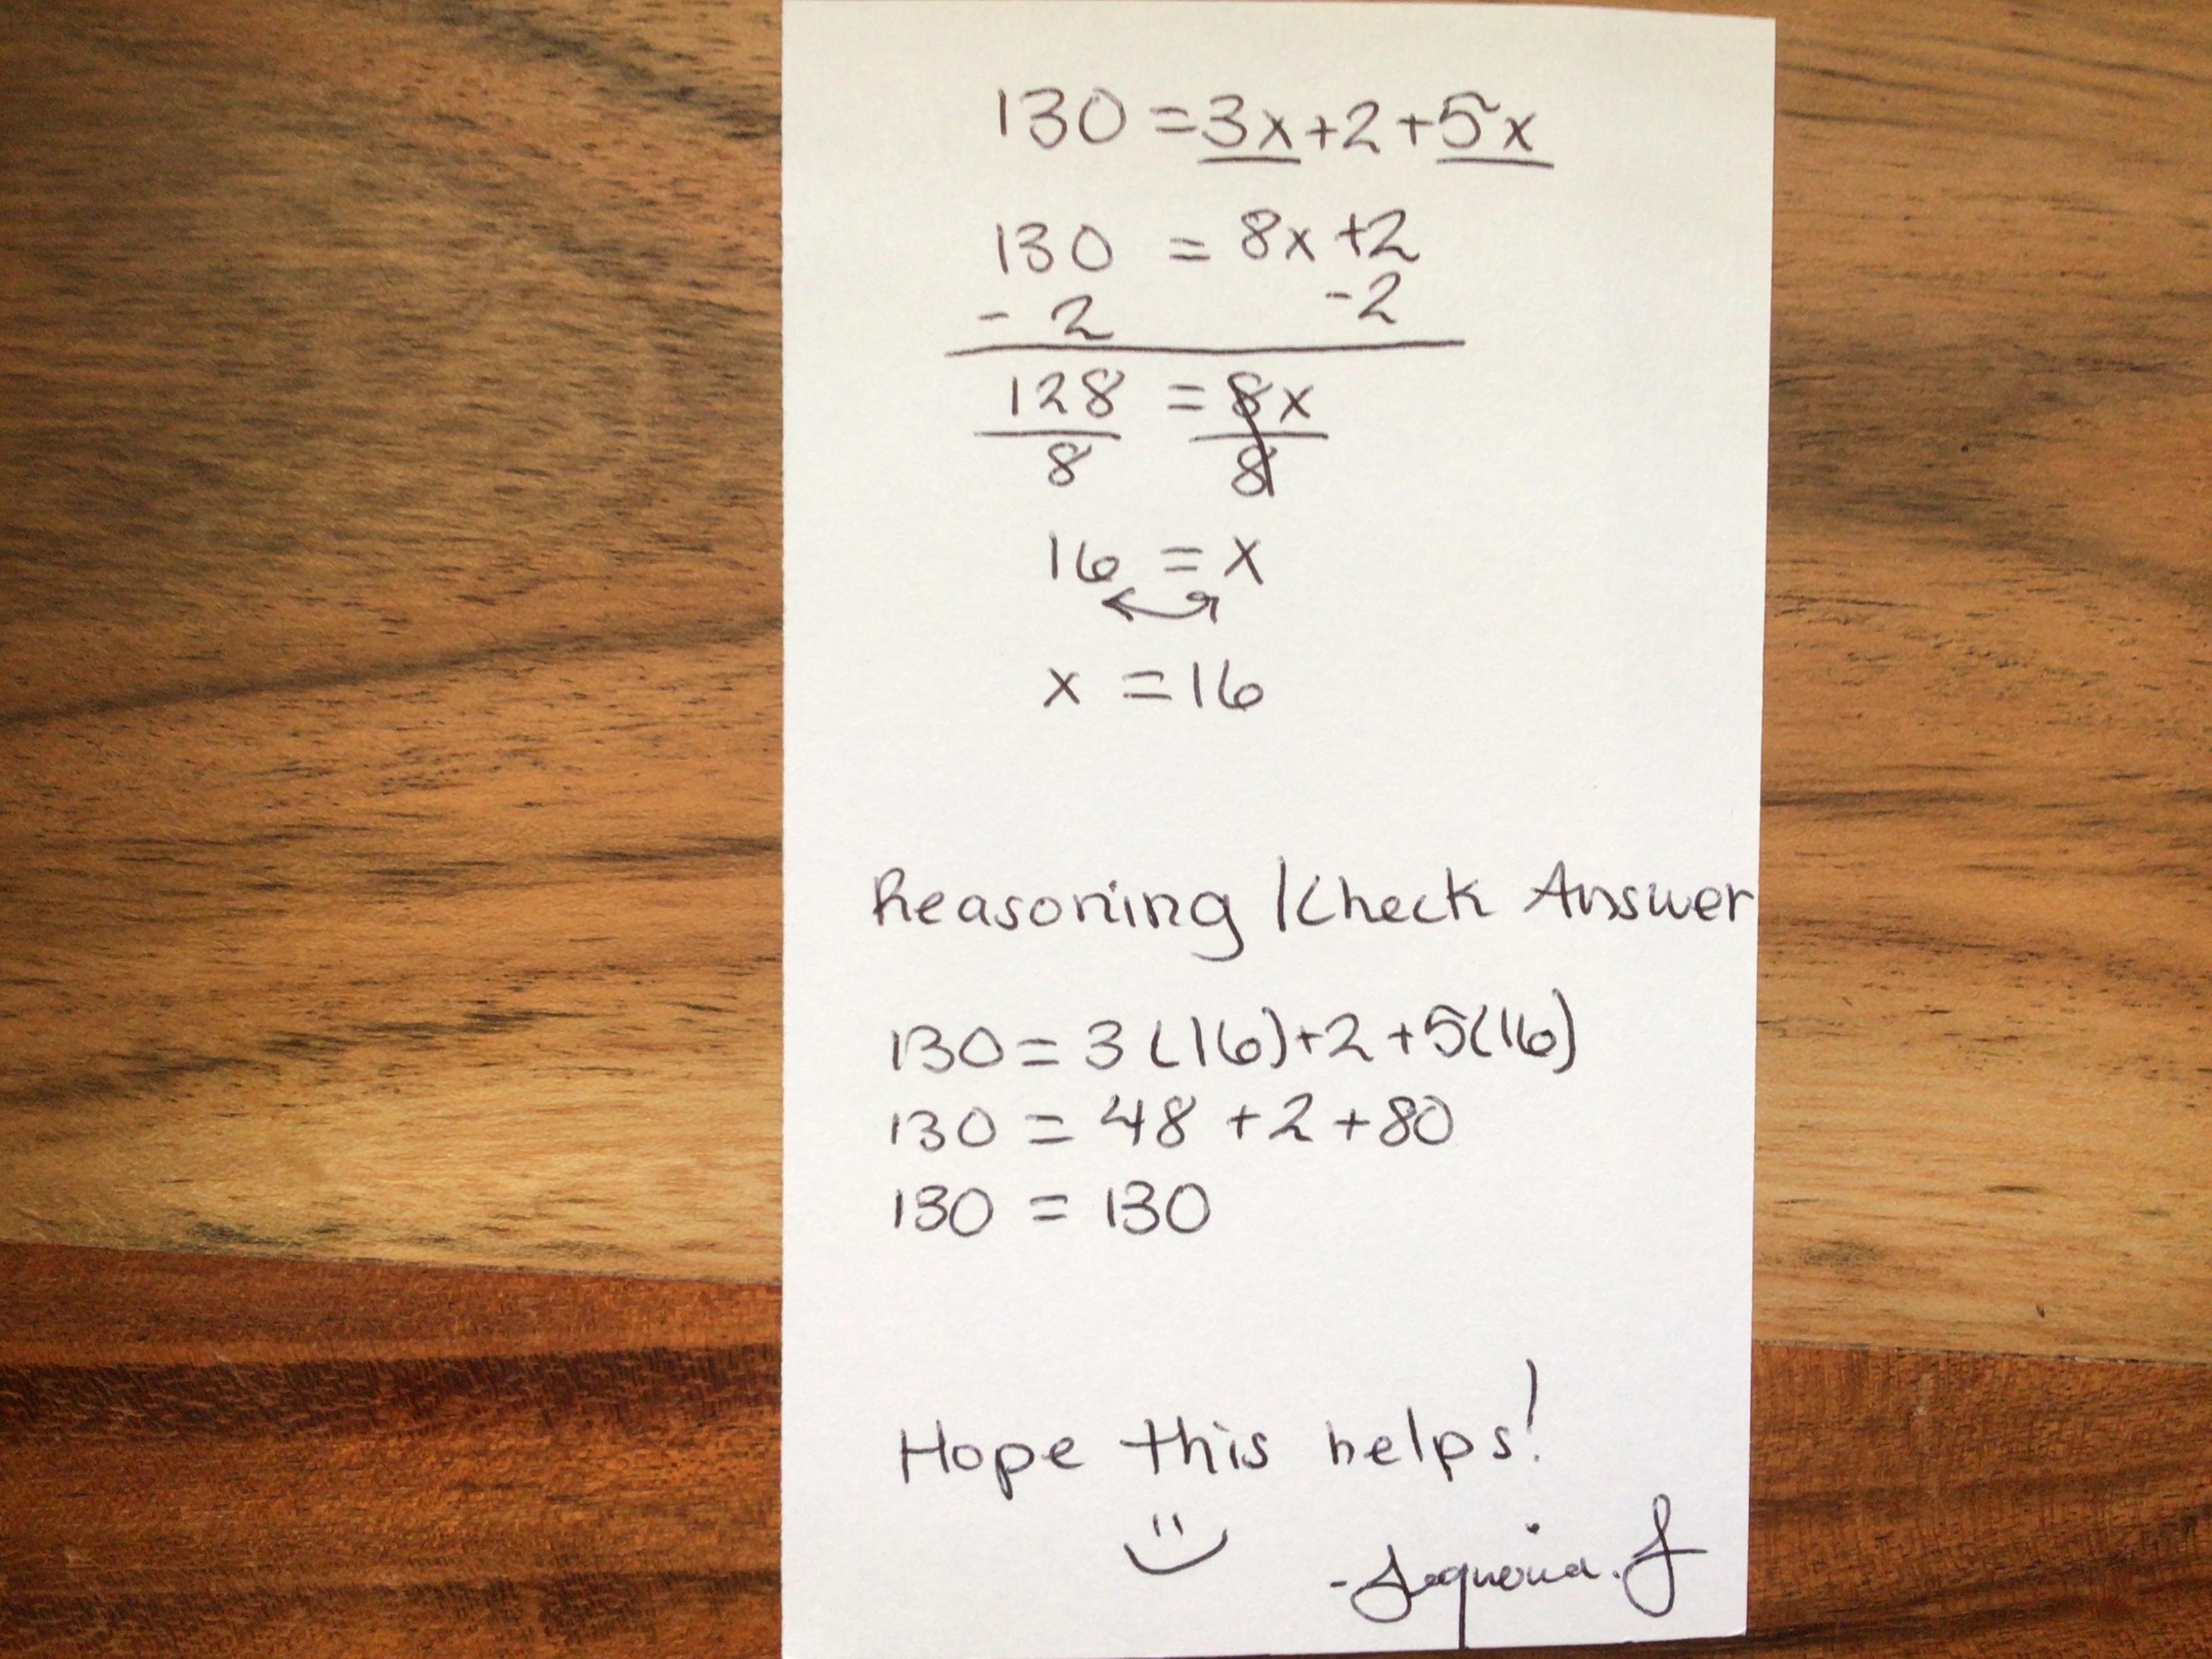 130 = 3x + 2 + 5x
130 = 8x + 2
- 2 - 2
128 = 8x
8 8
16 = x
x = 16
Reasoning / Check Answer
130 = 3(16) + 2 + 5(16)
130 = 48 + 2 + 80
130 = 130
Hope this helps!
- Sequoia. J